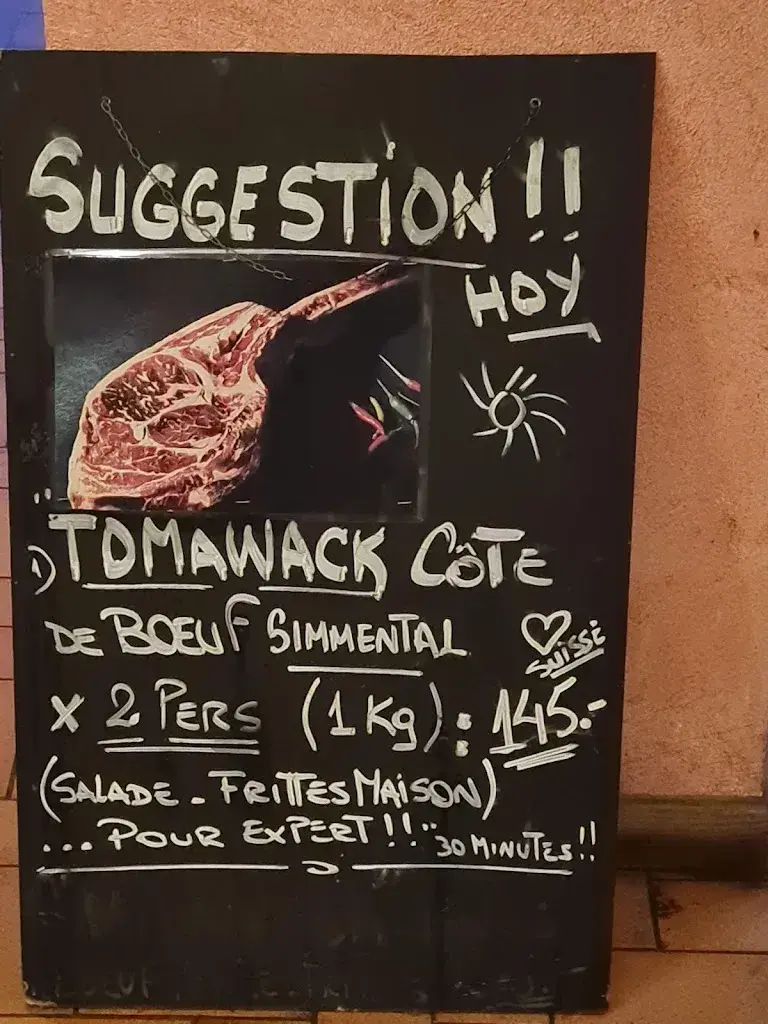 SUGGESTION !!
HOY
" TOMAWACK CÔTE
1)
DE BOEUF SIMMENTAL
SUISSE
X 2 PERS (1Kg) : 145.-
(SALADE - FRITTES MAISON)
... POUR EXPERT !! " 30 MINUTES !!